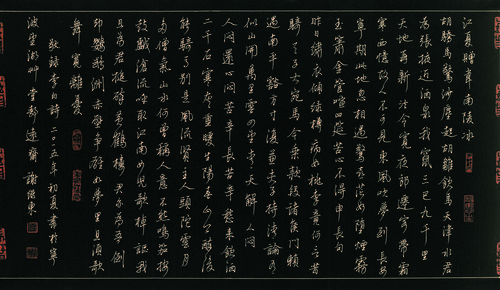 江夏贈韋南陵冰
胡驕馬驚沙塵起胡雛飲馬天津水君
為張掖近酒泉我竄三巴九千里
天地再新法令寬夜郎遷客帶霜
寒西憶故人不可見東風吹夢到長安
寧期此地忽相遇驚喜茫如墮煙霧
玉簫金管喧四筵苦心不得申長句
昨日繡衣傾綠樽病如桃李竟何言昔
騎天子大宛馬今乘款段諸侯門賴
遇南平豁方寸復兼夫子持清論有
似山開萬里雲四望青天解人悶
人悶還心悶苦辛長苦辛愁來飲酒
二千石寒灰重暖生陽春山公醉後
能騎馬別是風流賢主人頭陀雲月
多僧氣山水何曾稱人意不然鳴笳按
鼓戲滄流呼取江南女兒歌棹謳我
且為君槌碎黃鶴樓君亦為吾倒
却鸚鵡洲赤壁爭雄如夢里且須歌
舞寬離憂
敬錄李白詩二〇一五年初夏書於寧
波雲湖畔